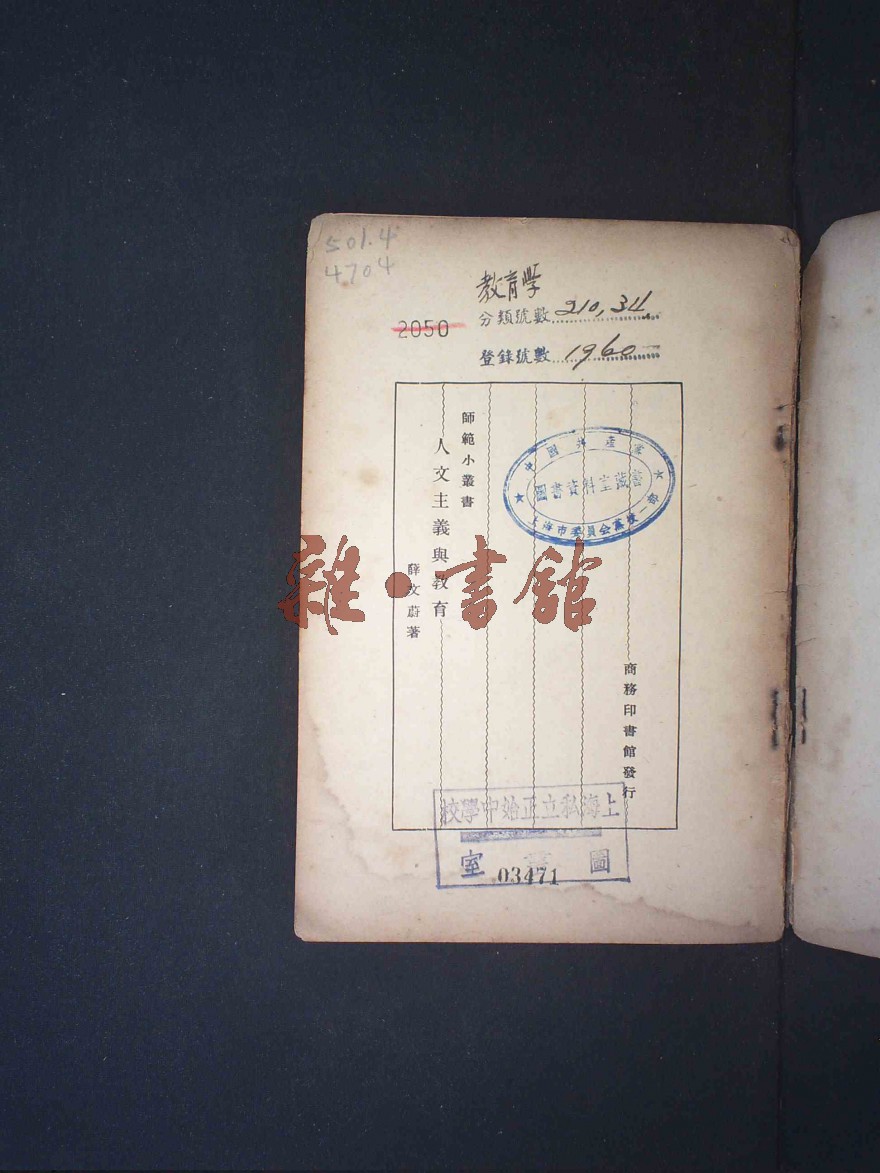 501.4
4704
教育學
分類號數 210,34
2050
登錄號數 1960
師範小叢書
人文主義與教育
薛文蔚著
商務印書館發行
中國共產黨
圖書資料室藏書
上海市委員會黨校一部
雜·書館
上海私立正始中學校
圖書室
03471